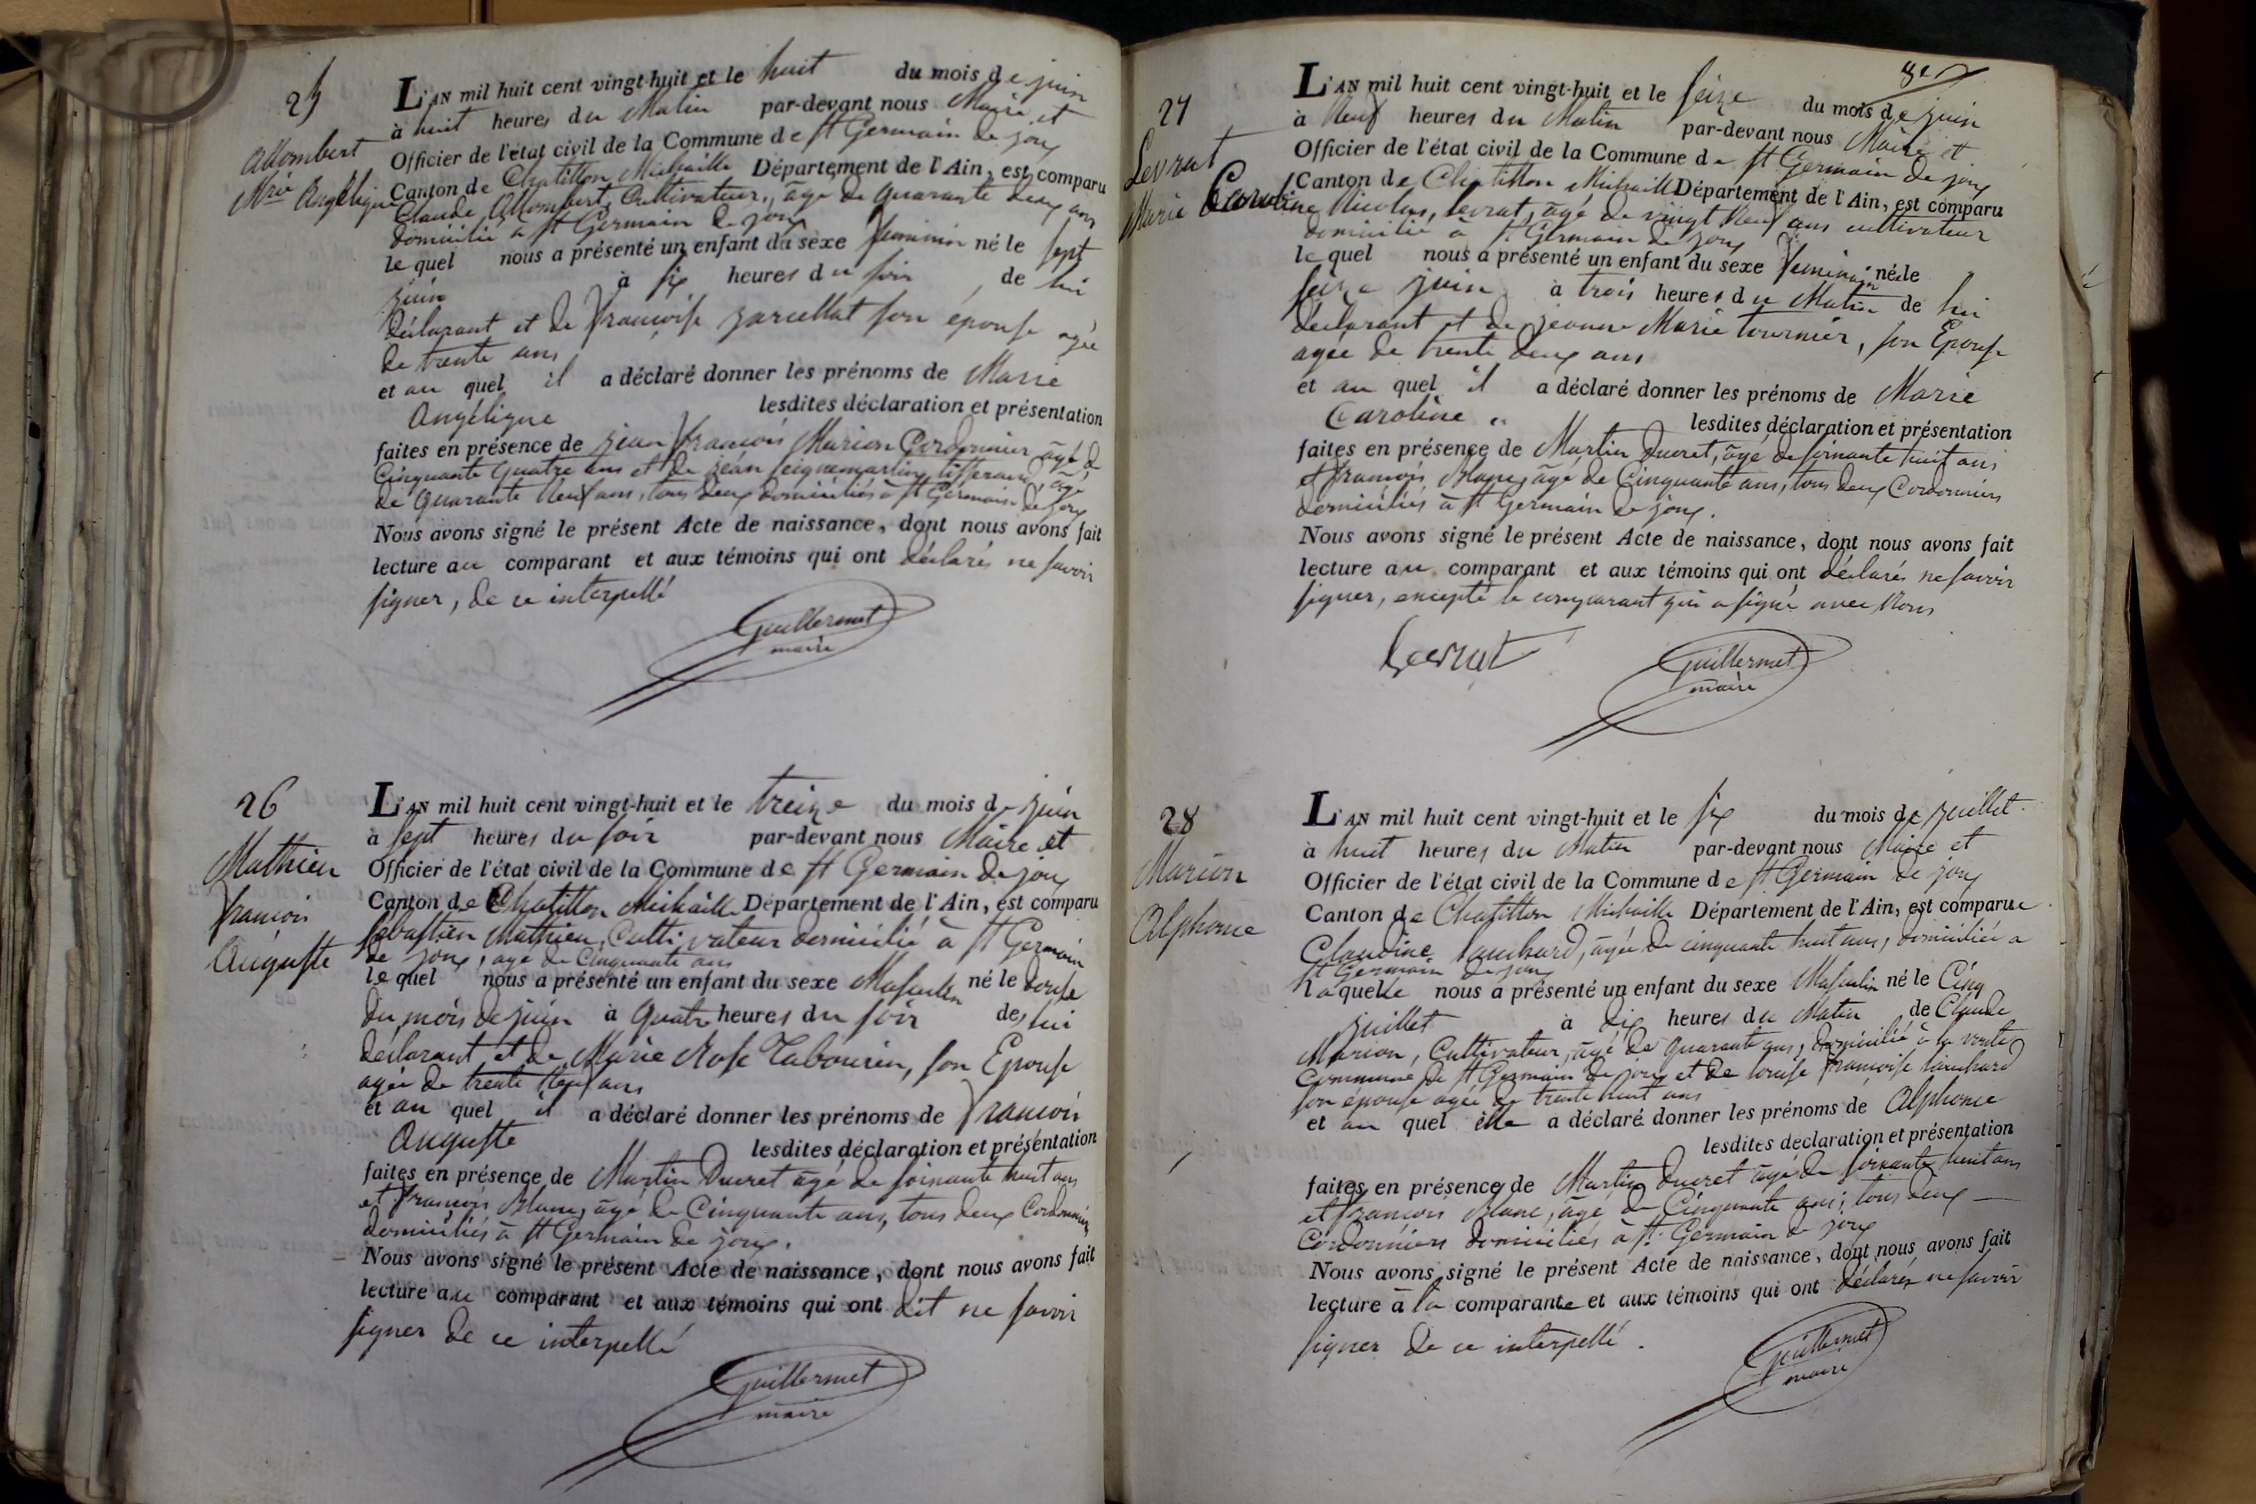 25
Allombert
Mrie Angélique
L'AN mil huit cent vingt-huit et le huit du mois de juin
à huit heures du Matin par-devant nous Maire et
Officier de l'état civil de la Commune de St Germain de joux
Canton de Chatillon Michaille Département de l'Ain, est comparu
Claude Allombert, Cultivateur, âgé de quarante deux ans
domicilié à St Germain de joux
le quel nous a présenté un enfant du sexe feminin né le sept
juin à six heures du soir de lui
déclarant et de françoise jarcellat son épouse agée
de trente ans
et au quel il a déclaré donner les prénoms de Marie
Angélique lesdites déclaration et présentation
faites en présence de jean françois Marion Cordonnier âgé de
Cinquante quatre ans et de jean seignemartin tisserand, âgé
de quarante neuf ans, tous deux domiciliés à St Germain de joux
Nous avons signé le présent Acte de naissance, dont nous avons fait
lecture au comparant et aux témoins qui ont déclarés ne savoir
signer, de ce interpellé
Guillermet
maire
26
Mathieu
françois
Auguste
L'AN mil huit cent vingt-huit et le treize du mois de juin
à sept heures du soir par-devant nous Maire et
Officier de l'état civil de la Commune de St Germain de joux
Canton de Chatillon Michaille Département de l'Ain, est comparu
Sébastien Mathieu, Cultivateur domicilié à St Germain
de joux, âgé de Cinquante ans
le quel nous a présenté un enfant du sexe Masculin né le douze
du mois de juin à quatre heures du soir de lui
déclarant et de Marie Rose Tabourin, son Epouse
agée de trente neuf ans
et au quel il a déclaré donner les prénoms de françois
Auguste lesdites déclaration et présentation
faites en présence de Martin Ducret âgé de soixante huit ans
et françois Blanc, âgé de Cinquante ans, tous deux Cordonniers
domiciliés à St Germain de joux.
Nous avons signé le présent Acte de naissance, dont nous avons fait
lecture au comparant et aux témoins qui ont dit ne savoir
signer de ce interpellé
Guillermet
maire
27
Levrat
Marie Caroline
L'AN mil huit cent vingt-huit et le seize du mois de juin
à neuf heures du Matin par-devant nous Maire et
Officier de l'état civil de la Commune de St Germain de joux
Canton de Chatillon Michaille Département de l'Ain, est comparu
Nicolas, Levrat, âgé de vingt neuf ans cultivateur
domicilié à St Germain de joux
le quel nous a présenté un enfant du sexe feminin né le
seize juin à trois heures du Matin de lui
déclarant et de jeanne Marie tournier, son Epouse
agée de trente deux ans
et au quel il a déclaré donner les prénoms de Marie
Caroline lesdites déclaration et présentation
faites en présence de Martin Ducret, âgé de soixante huit ans
et françois Blanc, âgé de Cinquante ans, tous deux Cordonniers
domiciliés à St Germain de joux.
Nous avons signé le présent Acte de naissance, dont nous avons fait
lecture au comparant et aux témoins qui ont déclarés ne savoir
signer, excepté le comparant qui a signé avec Nous
Levrat
Guillermet
maire
28
Marion
Alphonse
L'AN mil huit cent vingt-huit et le six du mois de juillet
à huit heures du Matin par-devant nous Maire et
Officier de l'état civil de la Commune de St Germain de joux
Canton de Chatillon Michaille Département de l'Ain, est comparue
Claudine âgée de cinquante huit ans, domiciliée a
St Germain de joux
Laquelle nous a présenté un enfant du sexe Masculin né le Cinq
juillet à dix heures du Matin de Claude
Marion, Cultivateur, âgé de quarante ans, domicilié à la
Commune de St Germain de joux et de louise françoise
son épouse agée de trente huit ans
et au quel elle a déclaré donner les prénoms de Alphonse
lesdites déclaration et présentation
faites en présence de Martin Ducret âgé de soixante huit ans
et françois Blanc, âgé de Cinquante ans, tous deux
Cordonniers domiciliés à St Germain de joux
Nous avons signé le présent Acte de naissance, dont nous avons fait
lecture à la comparante et aux témoins qui ont déclarés ne savoir
signer de ce interpellé.
Guillermet
maire